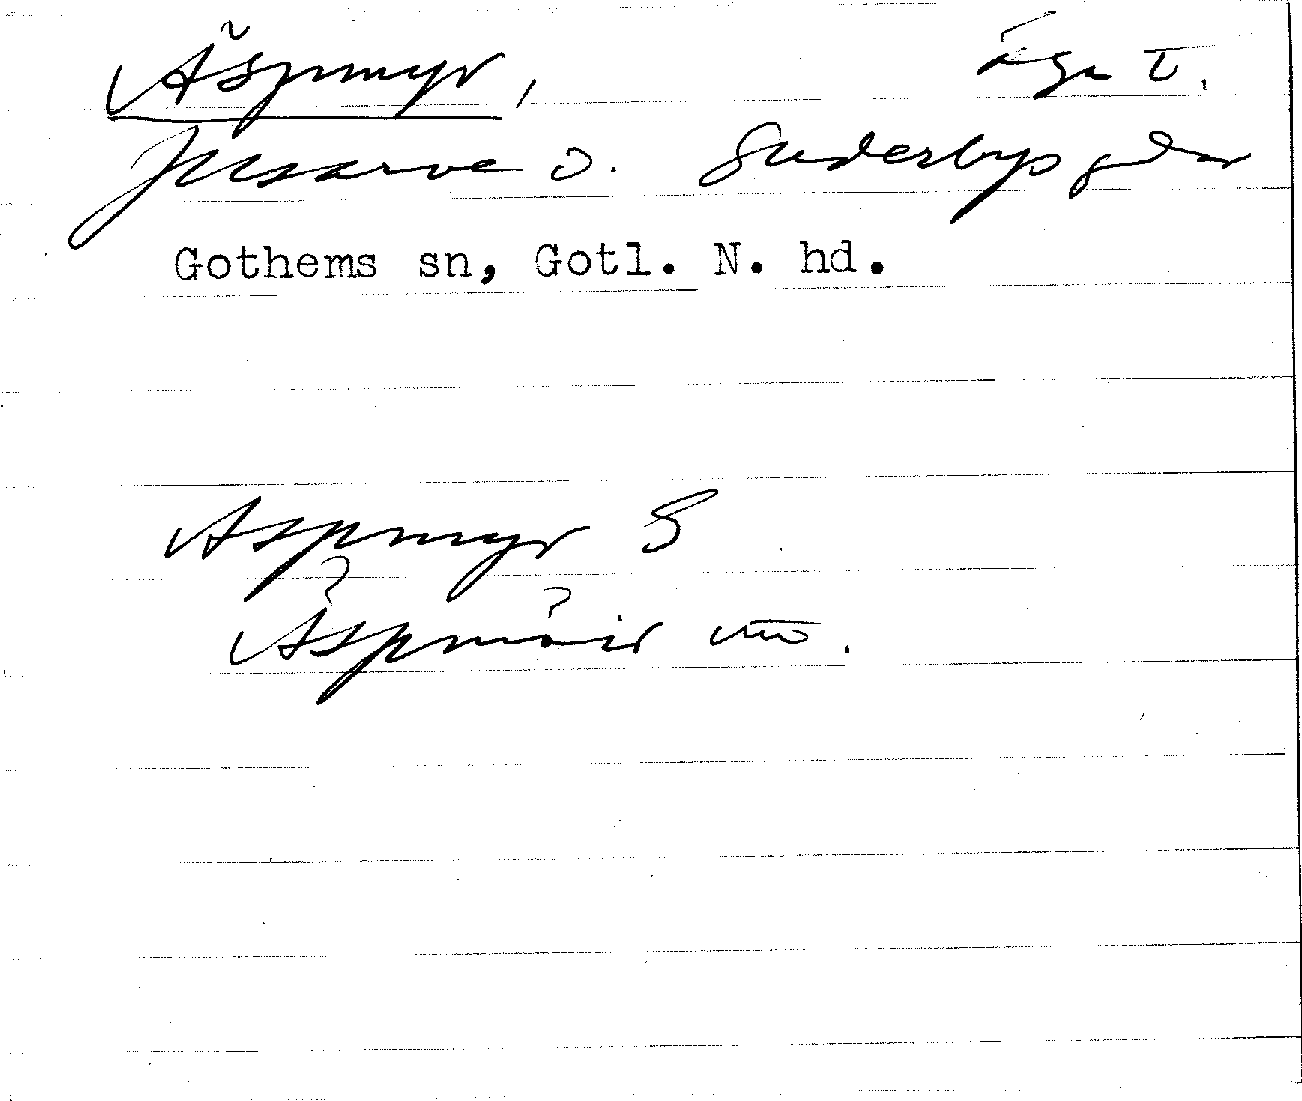 Aspmyr, äga t.
Jusarve o. Suderbys gdar
Gothems sn, Gotl. N. hd.
Aspmyr S
Aspmöir